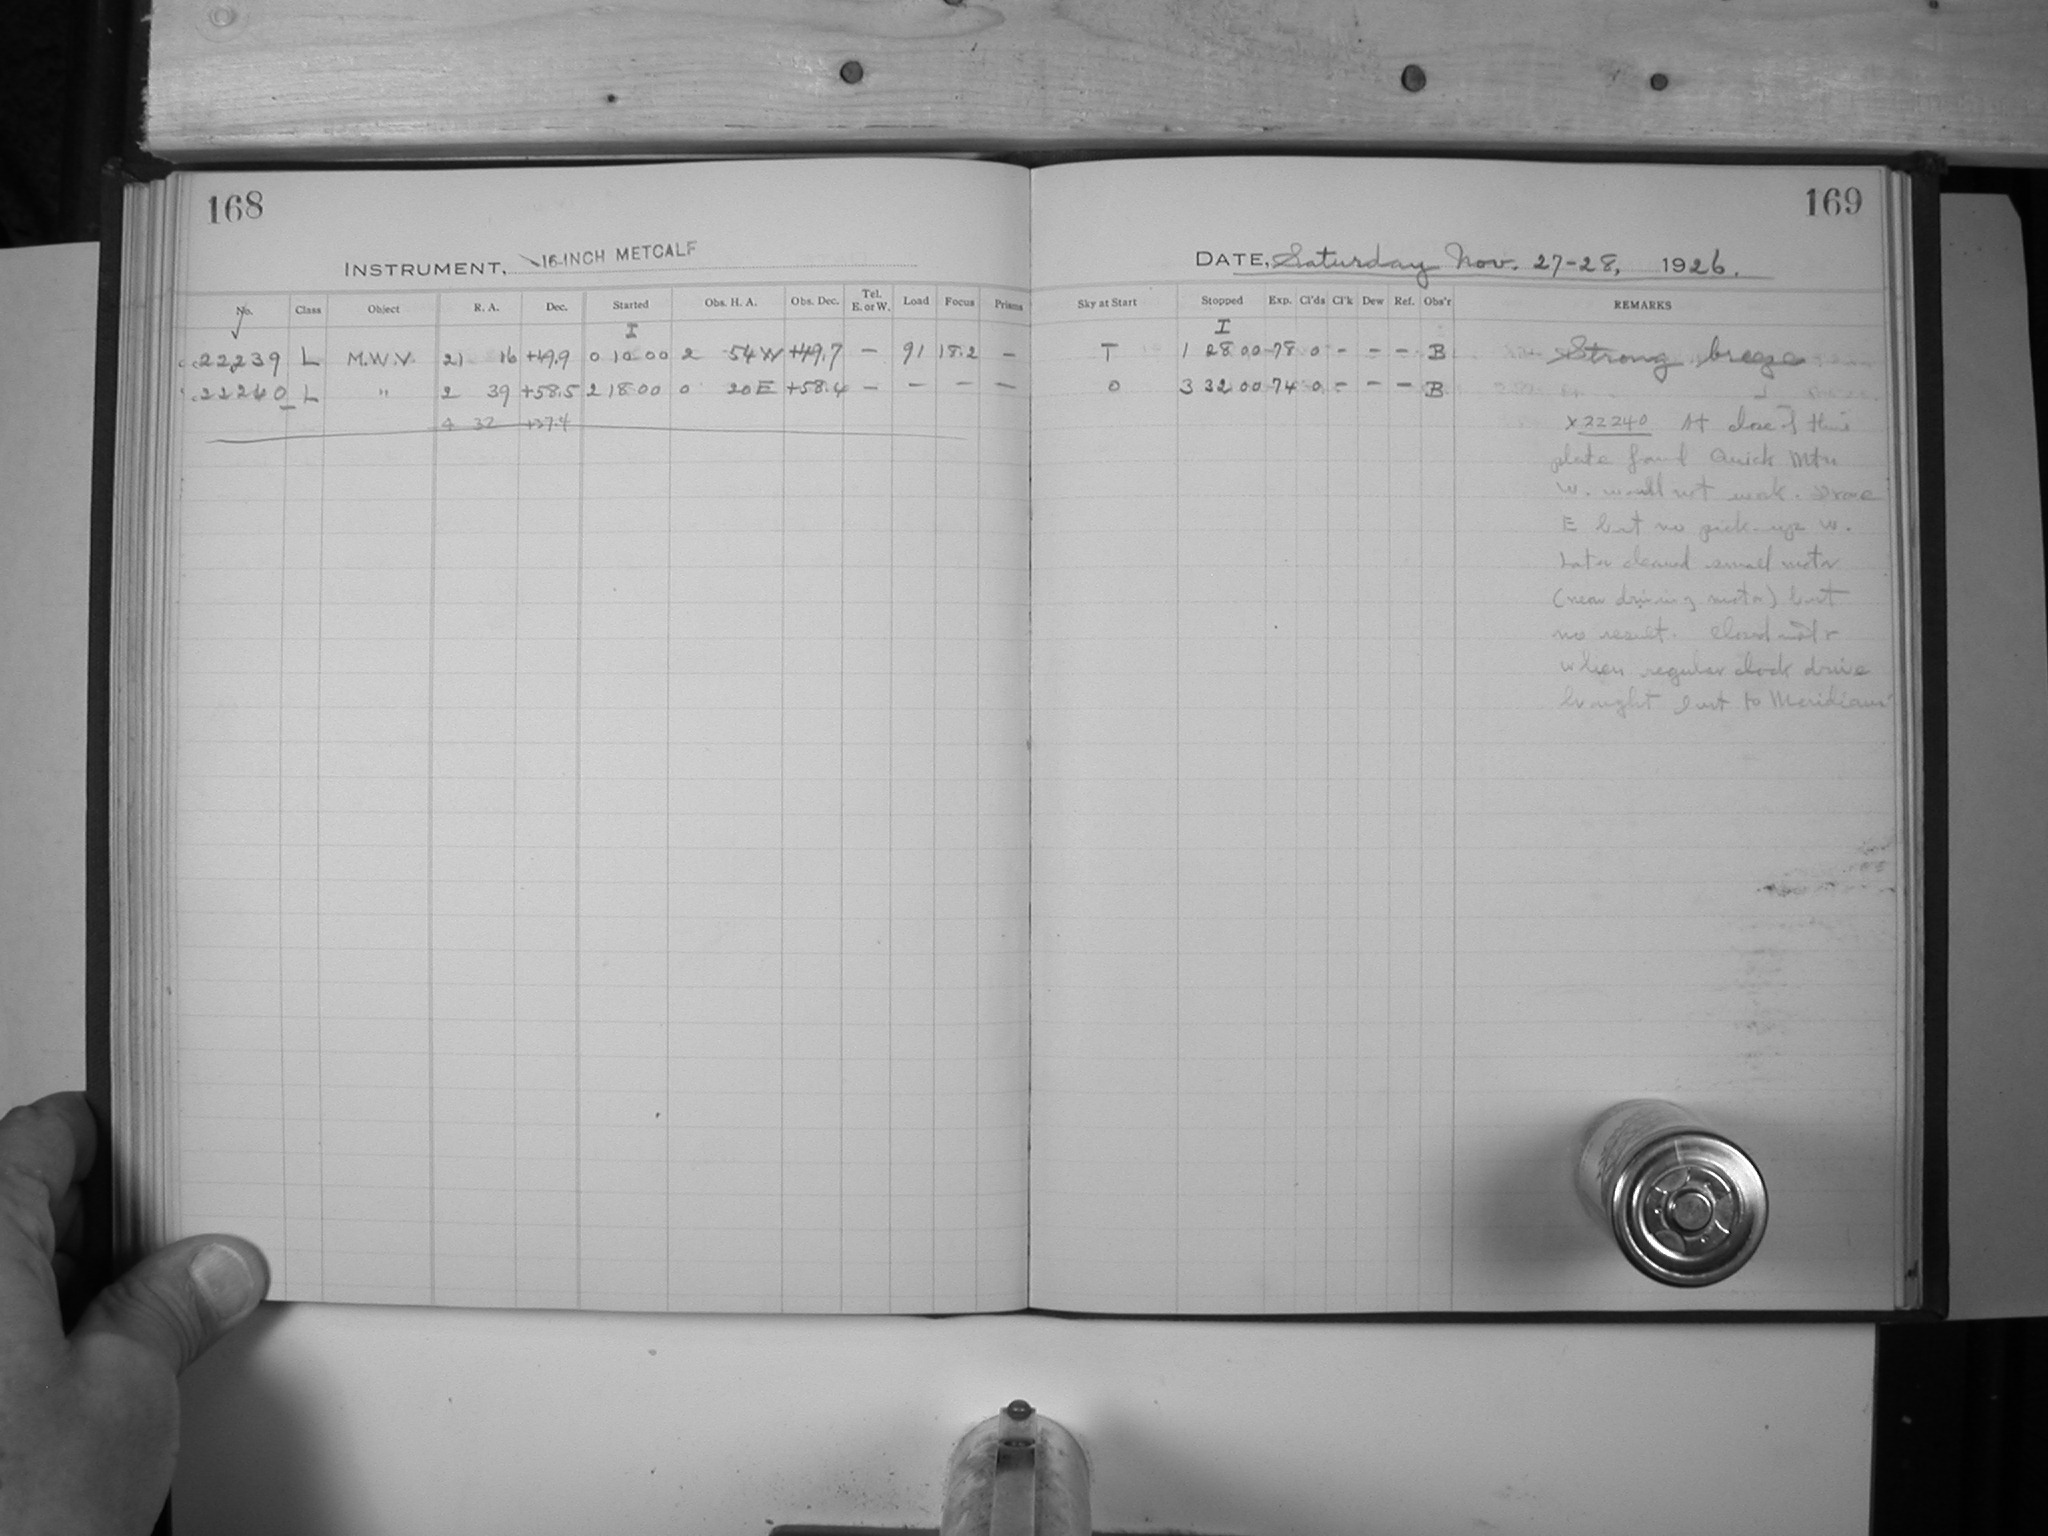 168
169
INSTRUMENT, 16-INCH METCALF
DATE, Saturday Nov. 27-28, 1926.
No. Class Object R. A. Dec. Started Obs. H. A. Obs. Dec. Tel. E. or W. Load Focus Prisms Sky at Start Stopped Exp. Cl'ds Cl'k Dew Ref. Obs'r REMARKS
I I
22239 L M.W.V. 21 16 +49.9 0 10 00 2 54 W +49.7 — 91 18.2 — T 1 28 00 78 0 - - - B Strong breeze
22240 L " 2 39 +58.5 2 18 00 0 20 E +58.4 — — — — 0 3 32 00 74 0 - - - B
4 32 +37.4
x 22240 At close of this
plate found Quick Mtn
W. would not work. Drove
E but no pick-up W.
Later cleaned small motor
(near driving motor) but
no result. Closed
when regular clock drive
brought inst to Meridian